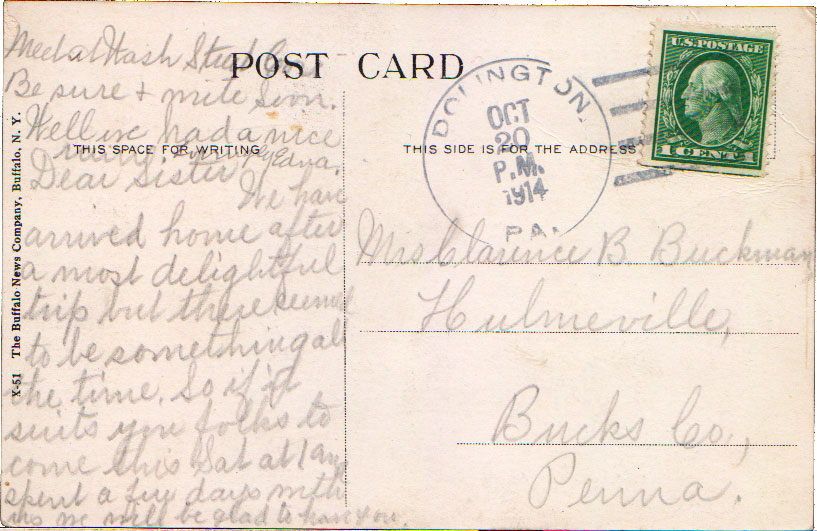 Meet at Wash Street
Be sure + write soon.
Well we had a nice
Edna.
POST CARD
THIS SPACE FOR WRITING
THIS SIDE IS FOR THE ADDRESS
Dear Sister
We have
arrived home after
a most delightful
trip but there seemed
to be something all
the time. So if it
suits you folks to
come this Sat at 1 and
spend a few days with
us we will be glad to have you.
X-51 The Buffalo News Company, Buffalo, N. Y.
DOLINGTON,
OCT
20
P.M.
1914
PA.
U.S. POSTAGE
1 CENT 1
Mrs Clarence B Buckman
Hulmeville,
Bucks Co,
Penna.